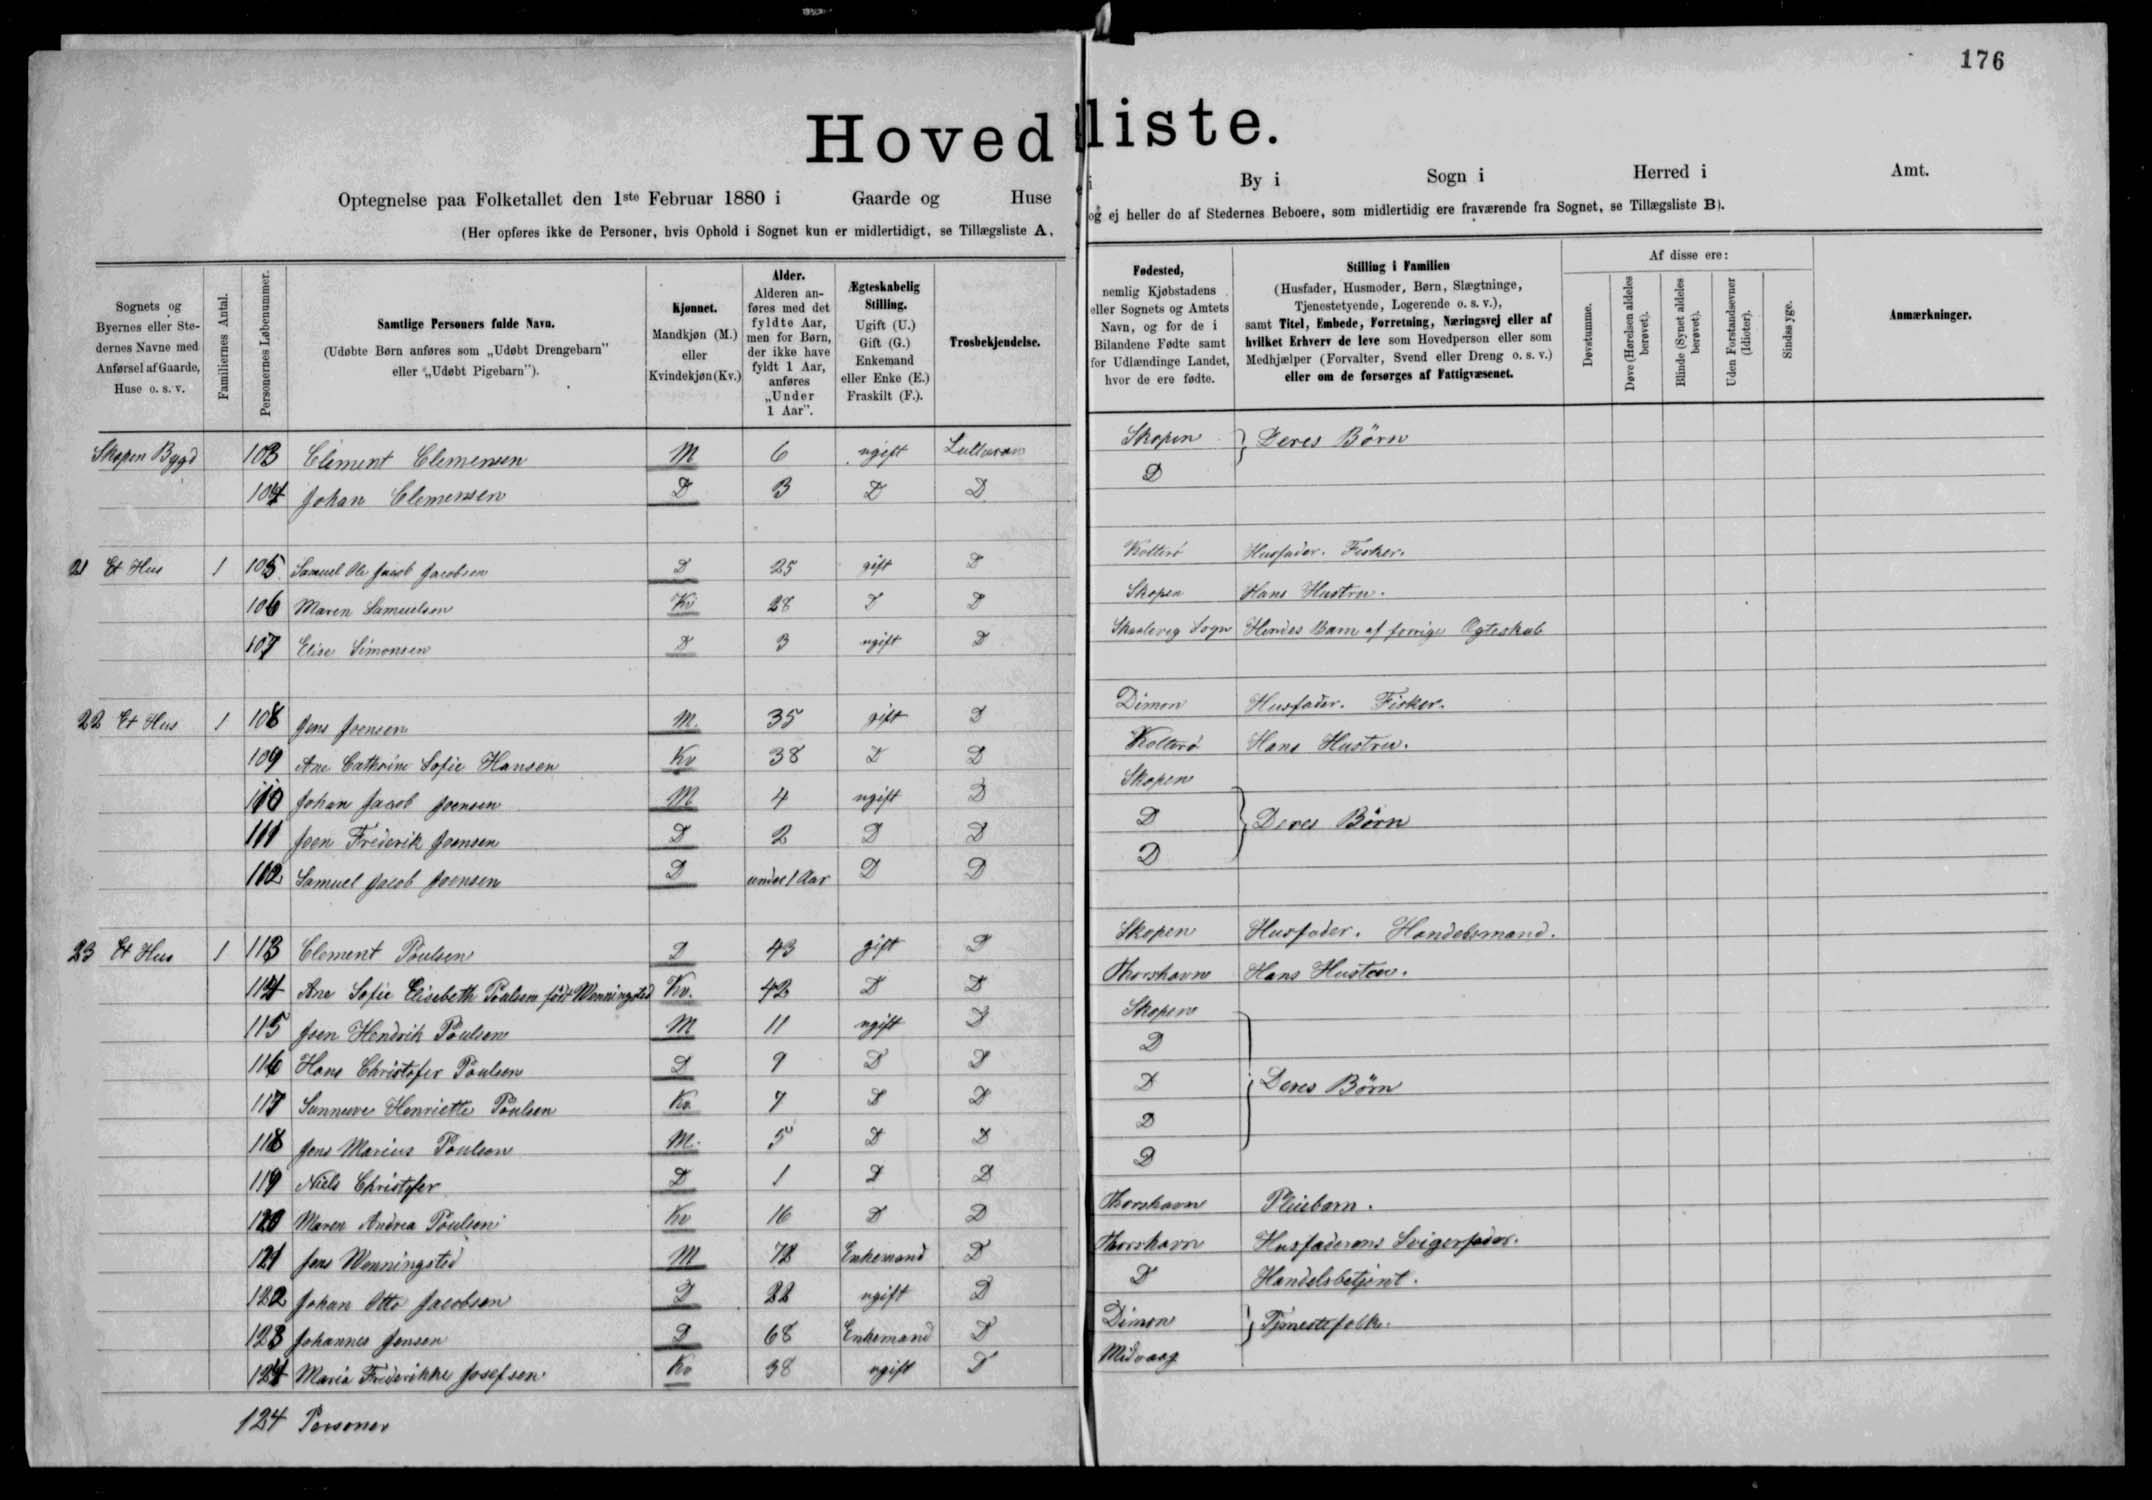 176
Hovedliste.
Optegnelse paa Folketallet den 1ste Februar 1880 i Gaarde og Huse i By i Sogn i Herred i Amt.
(Her opføres ikke de Personer, hvis Ophold i Sognet kun er midlertidigt, se Tillægsliste A, og ej heller de af Stedernes Beboere, som midlertidig ere fraværende fra Sognet, se Tillægsliste B).
Sognets og Byernes eller Stedernes Navne med Anførsel af Gaarde, Huse o. s. v.
Familiernes Antal.
Personernes Løbenummer.
Samtlige Personers fulde Navn. (Udøbte Børn anføres som „Udøbt Drengebarn" eller „Udøbt Pigebarn").
Kjønnet. Mandkjøn (M.) eller Kvindekjøn (Kv.)
Alder. Alderen anføres med det fyldte Aar, men for Børn, der ikke have fyldt 1 Aar, anføres „Under 1 Aar".
Ægteskabelig Stilling. Ugift (U.) Gift (G.) Enkemand eller Enke (E.) Fraskilt (F.).
Trosbekjendelse.
Fødested, nemlig Kjøbstadens eller Sognets og Amtets Navn, og for de i Bilandene Fødte samt for Udlændinge Landet, hvor de ere fødte.
Stilling i Familien (Husfader, Husmoder, Børn, Slægtninge, Tjenestetyende, Logerende o. s. v.), samt Titel, Embede, Forretning, Næringsvej eller af hvilket Erhverv de leve som Hovedperson eller som Medhjælper (Forvalter, Svend eller Dreng o. s. v.) eller om de forsørges af Fattigvæsenet.
Af disse ere:
Døvstumme.
Døve (Hørelsen aldeles berøvet).
Blinde (Synet aldeles berøvet).
Uden Forstandsevner (Idioter).
Sindssyge.
Anmærkninger.
Skopen Bygd 103 Clement Clemensen M 6 ugift Lutheran Skopen } Deres Börn
104 Johan Clemensen D 3 D D D
21 Et Hus 1 105 Samuel Ole Jacob Jacobsen D 25 gift D Kolterö Husfader. Fisker.
106 Maren Samuelsen Kv 28 D D Skopen Hans Hustru.
107 Elise Simonsen D 3 ugift D Skaaleveg Sogn Hendes Barn af forrige Ægteskab
22 Et Hus 1 108 Jens Joensen M. 35 gift D Dimon Husfader. Fisker.
109 Ane Cathrine Sofie Hansen Kv 38 D D Kolterö Hans Hustru.
110 Johan Jacob Joensen M 4 ugift D Skopen
111 Joen Frederik Joensen D 2 D D D } Deres Börn
112 Samuel Jacob Joensen D under 1 Aar D D D
23 Et Hus 1 113 Clement Poulsen D 43 gift D Skopen Husfader. Handelsmand.
114 Ane Sofie Elisebeth Poulsen født Wenningsted Kv. 42 D D Thorshavn Hans Hustru.
115 Joen Hendrik Poulsen M 11 ugift D Skopen
116 Hans Christofer Poulsen D 9 D D D
117 Sunneve Henriette Poulsen Kv 7 D D D } Deres Börn
118 Jens Marius Poulsen M. 5 D D D
119 Niels Christofer D 1 D D D
120 Maren Andrea Poulsen Kv 16 D D Thorshavn Pleiebarn.
121 Jens Wenningsted M 72 Enkemand D Thorshavn Husfaderens Svigerfader.
122 Johan Otto Jacobsen D 22 ugift D D Handelsbetjent.
123 Johannes Jensen D 68 Enkemand D Dimon } Tjenestefolk.
124 Maria Frederikke Josefsen Kv 38 ugift D Midvaag
124 Personer